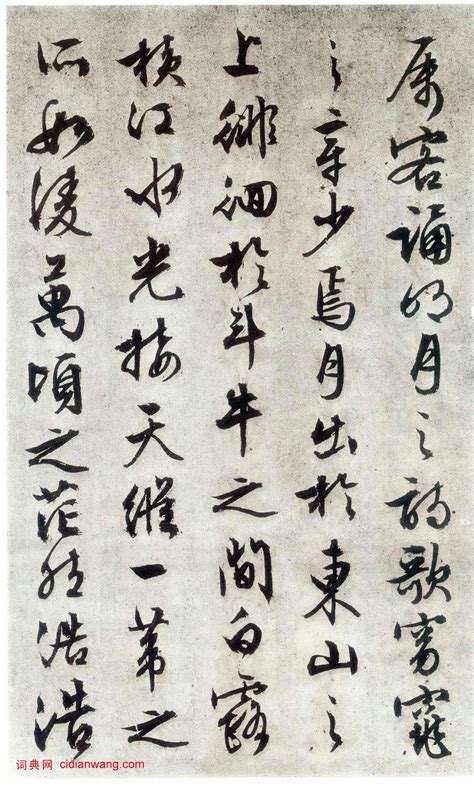 属客誦明月之詩歌窈窕
之章少焉月出於東山之
上徘徊於斗牛之間白露
橫江水光接天縱一葦之
所如淩萬頃之茫然浩浩
词典网 cidianwang.com